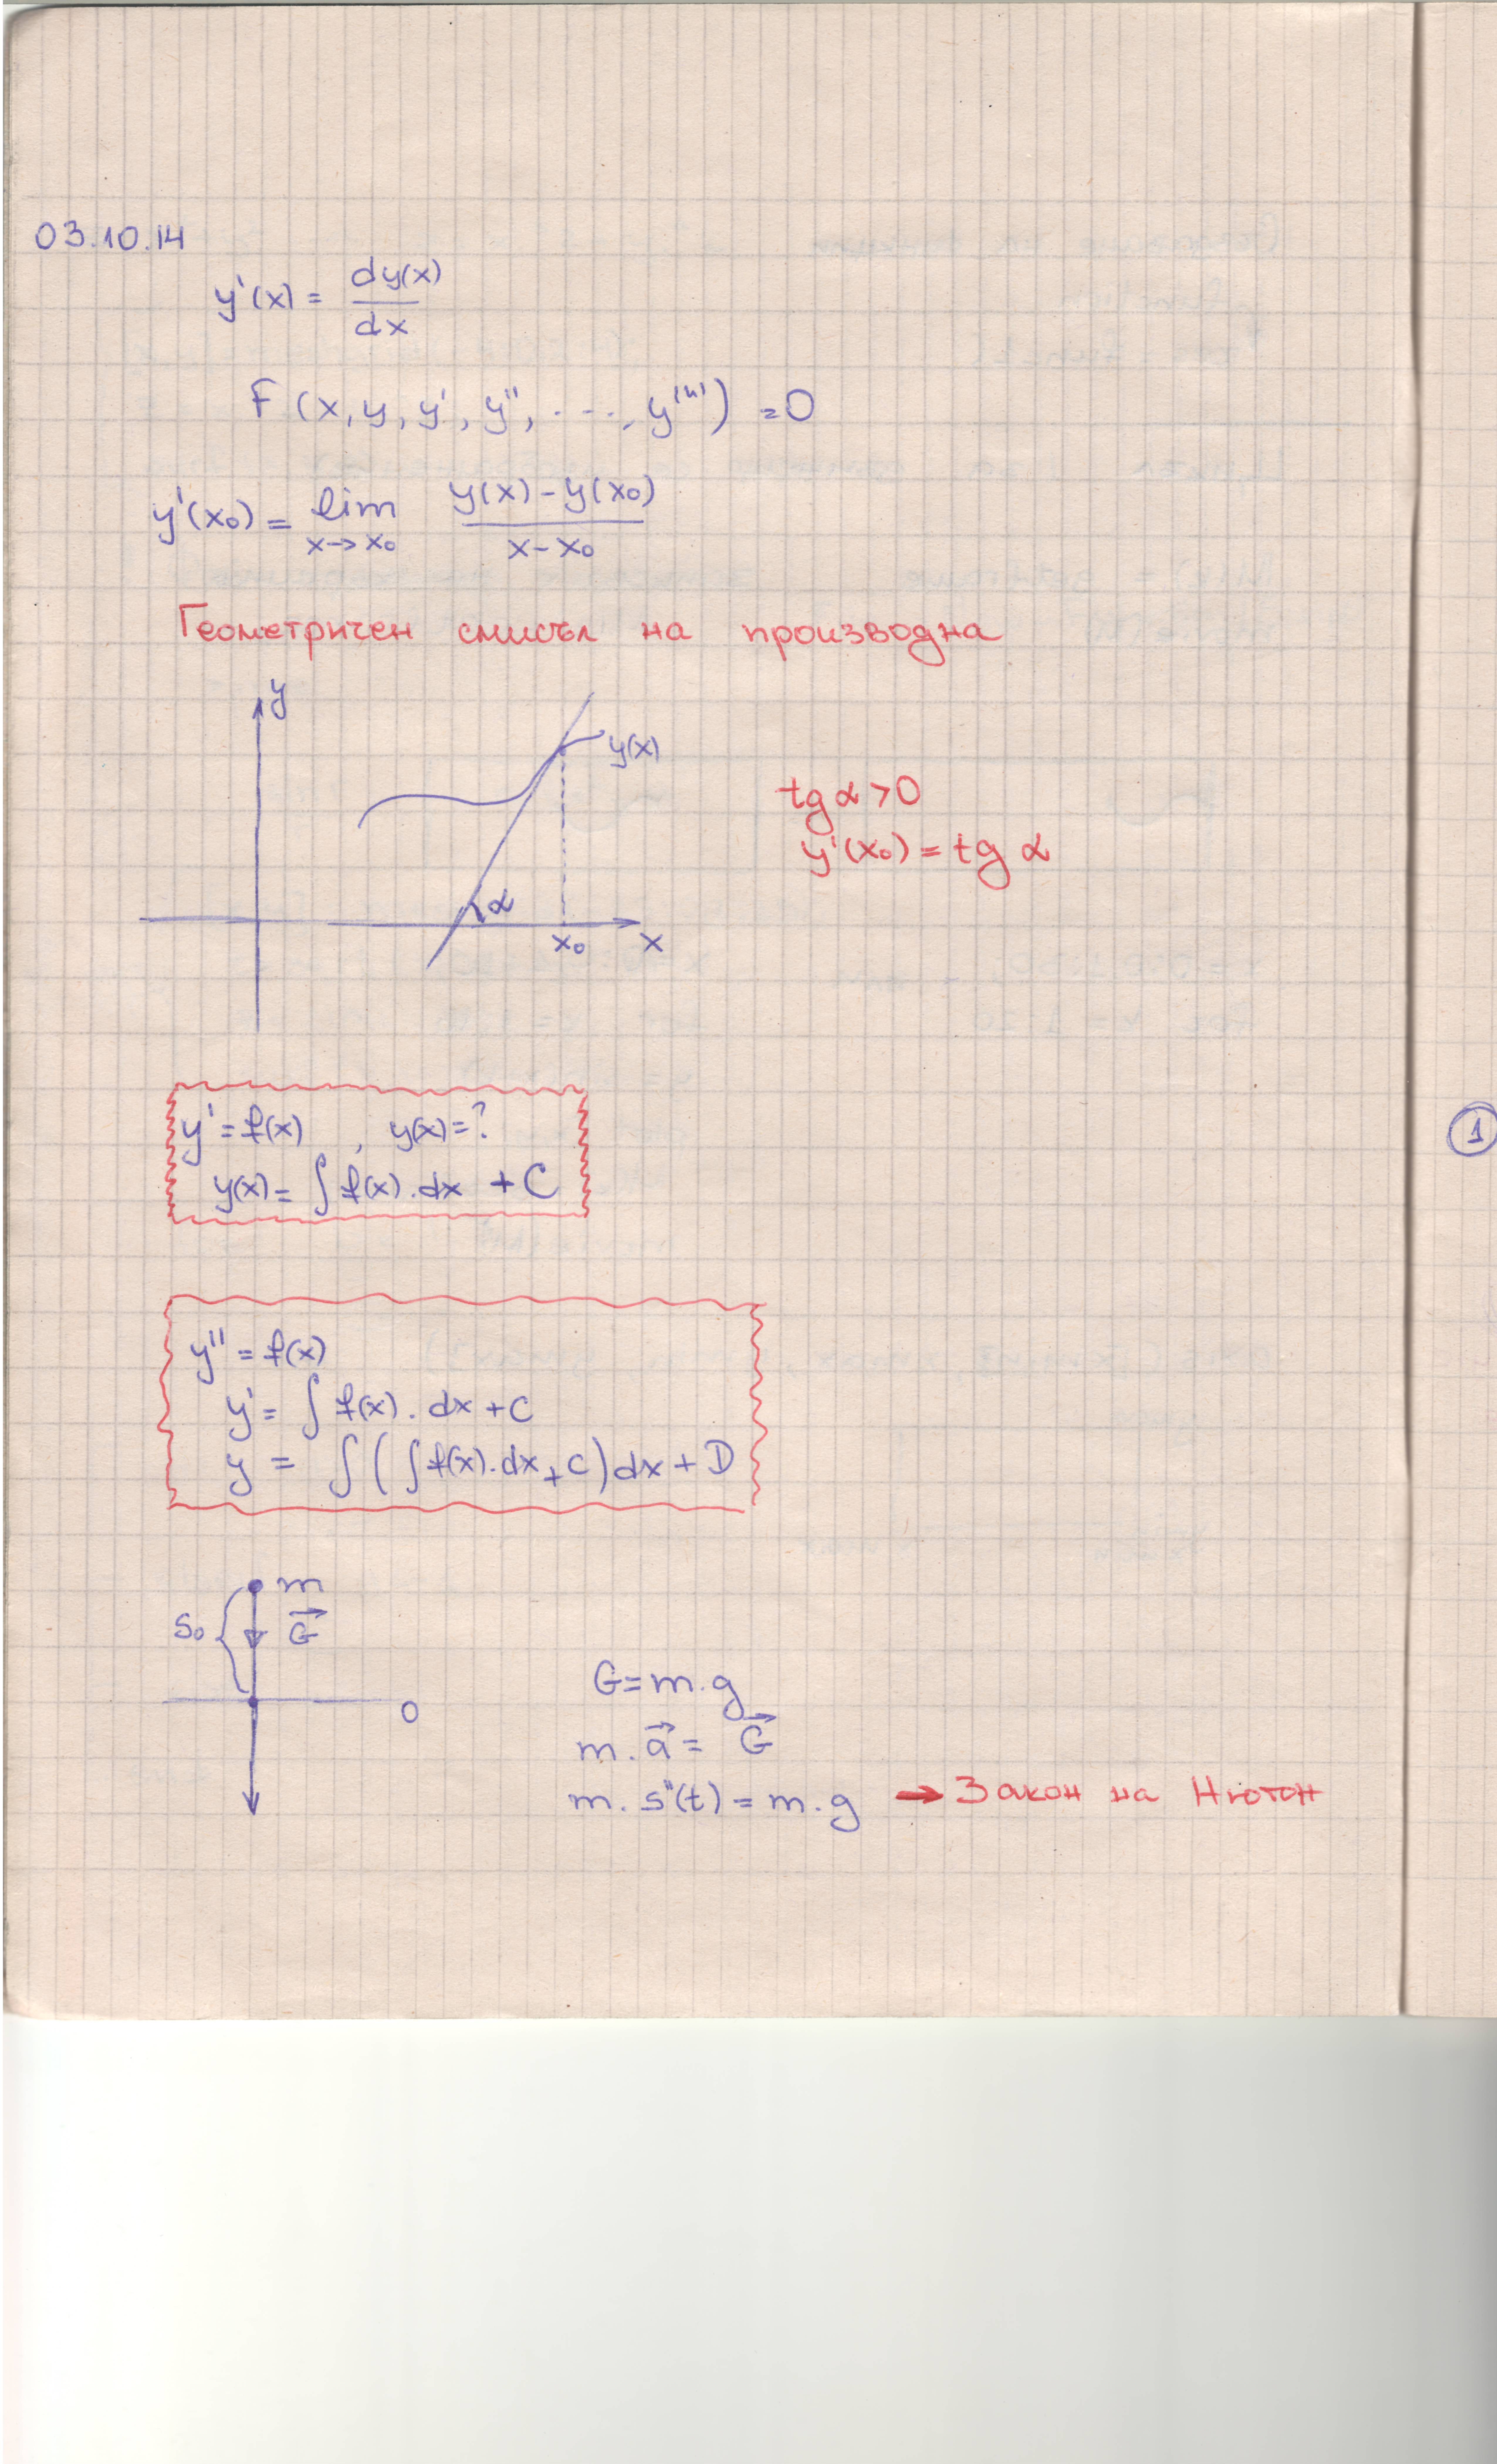 03.10.14
y'(x) = dy(x)/dx
F (x, y, y', y'', ..., y⁽ⁿ⁾) = 0
y'(x₀) = lim x→x₀ (y(x) - y(x₀))/(x - x₀)
Геометричен смисъл на производна
y
y(x)
tg α > 0
y'(x₀) = tg α
α
x₀ x
y' = f(x) , y(x) = ?
y(x) = ∫ f(x) . dx + C
1
y'' = f(x)
y' = ∫ f(x) . dx + C
y = ∫ ( ∫ f(x) . dx + C ) dx + D
m
S₀ G⃗
0
G = m . g
m . a⃗ = G⃗
m . s''(t) = m . g → Закон на Нютон